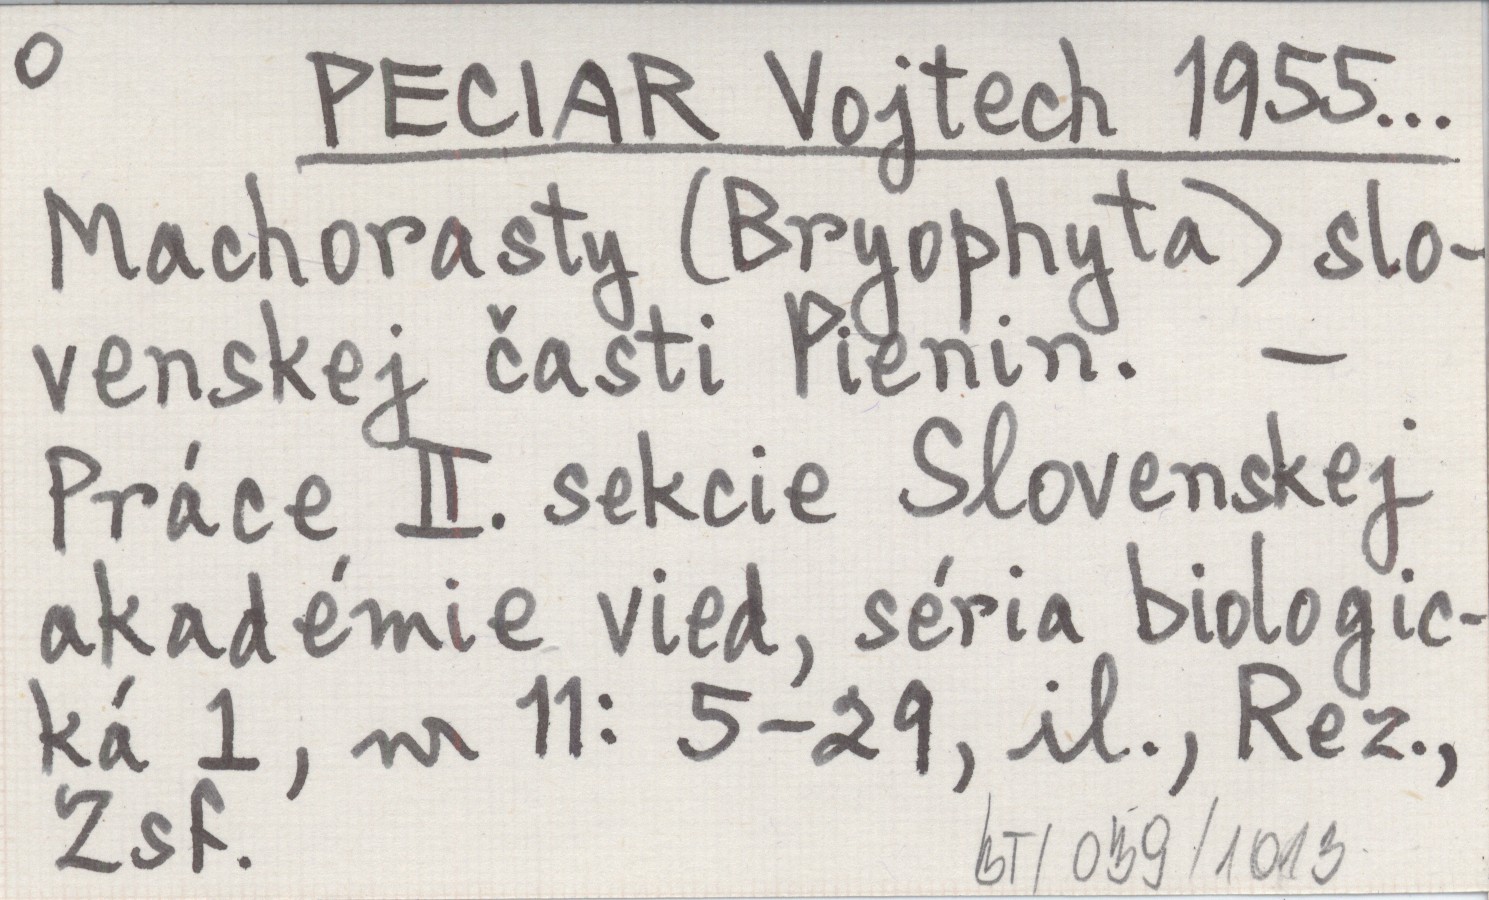 O PECIAR Vojtech 1955...
Machorasty (Bryophyta) slo-
venskej časti Pienin. —
Práce II. sekcie Slovenskej
akadémie vied, séria biologic-
ká 1, nr 11: 5-29, il., Rez.,
Zsf.
BT/039/1013